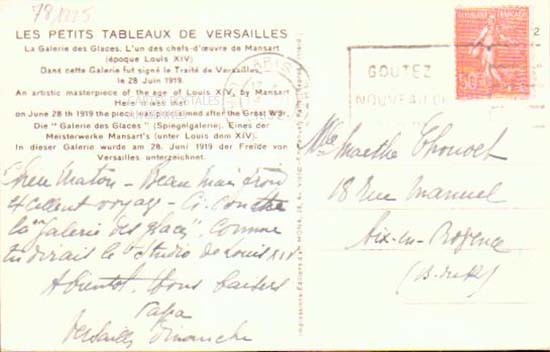 78/1225
LES PETITS TABLEAUX DE VERSAILLES
La Galerie des Glaces. L'un des chefs-d'œuvre de Mansart
(époque Louis XIV)
Dans cette Galerie fut signé le Traité de Versailles,
le 28 Juin 1919.
An artistic masterpiece of the age of Louis XIV, by Mansart
Here it was that
on June 28 th 1919 the piece was proclaimed after the Great War.
Die "Galerie des Glaces" (Spiegelgalerie). Eines der
Meisterwerke Mansart's (unter Louis dem XIV).
In dieser Galerie wurde am 28. Juni 1919 der Freide von
Versailles unterzeichnet.
Beau mais froid
excellent voyage - Ci-contre
la "Galerie des glaces". Comme
tu dirais le Studio de Louis XIV
A bientôt. Bons baisers
Papa
Versailles Dimanche
REPUBLIQUE FRANÇAISE
50c
PARIS
GOUTEZ
NOUVEAU
Mlle Marthe Thouvet
18 Rue Manuel
Aix-en-Provence
(B-du-R)